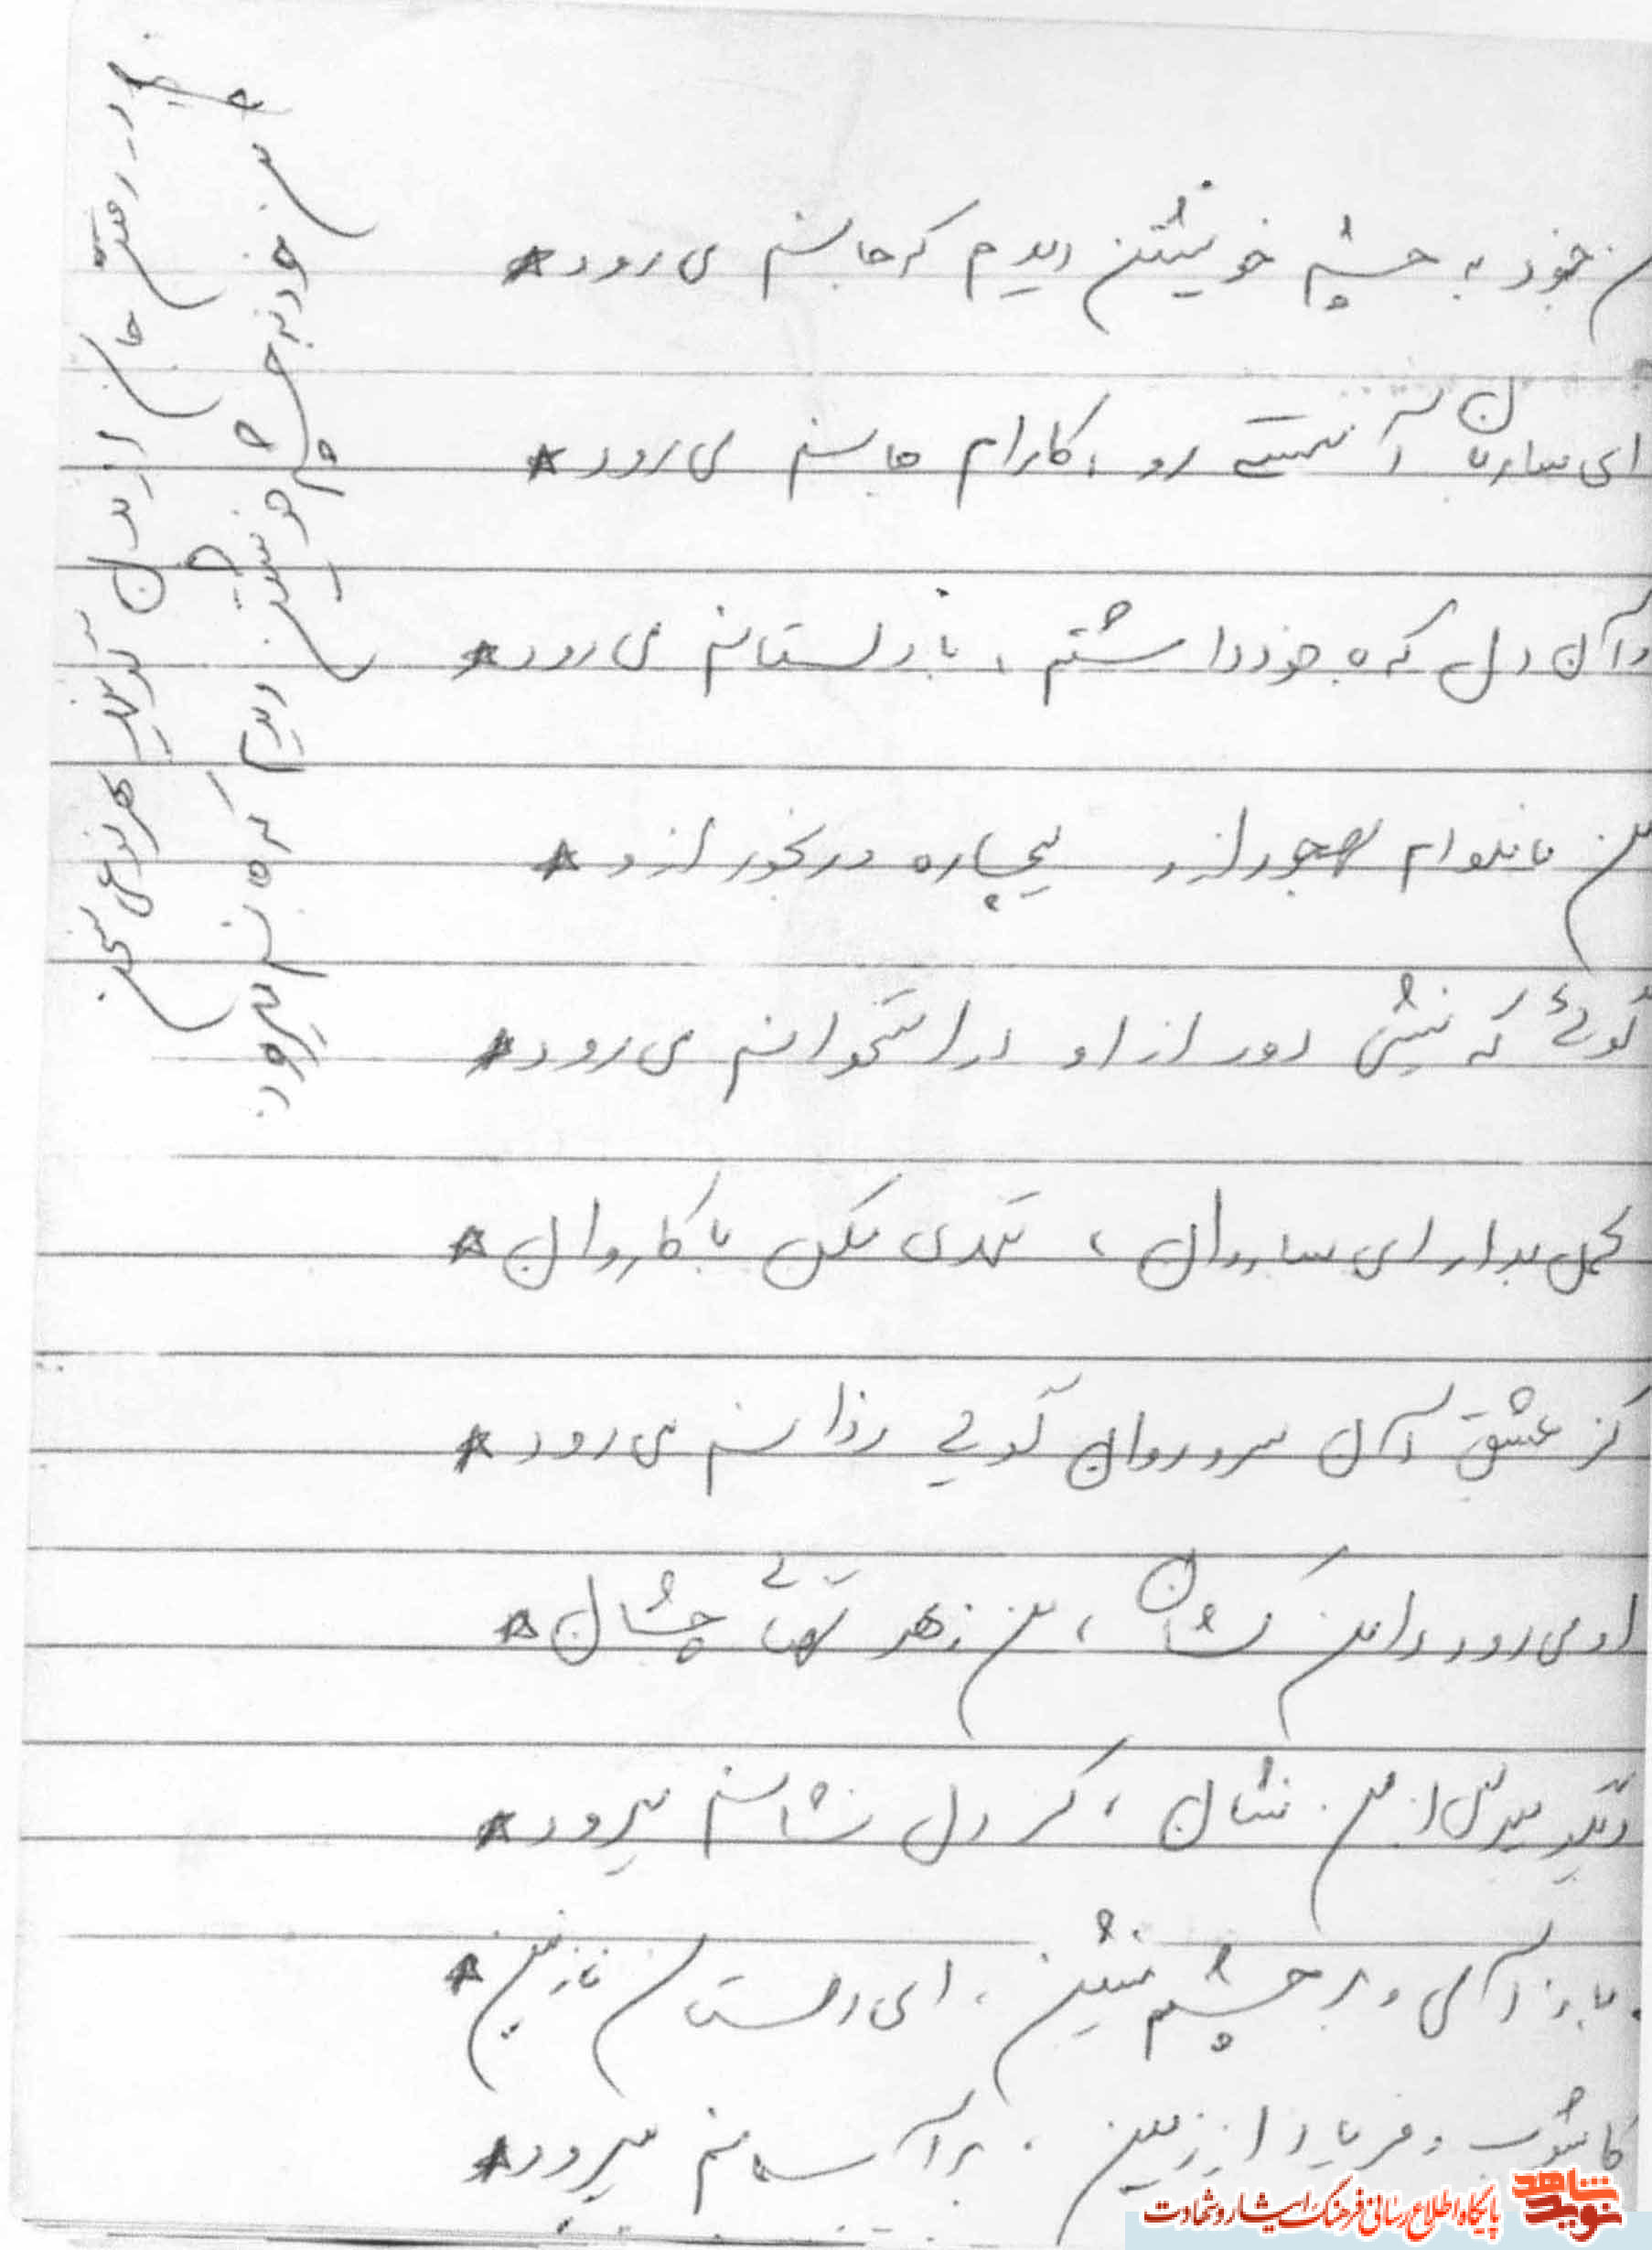 من خود به چشم خویشتن دیدم که جانم می رود*
ای ساربان آهسته رو، کارام جانم می رود*
وآن دل که با خود داشتم، با دلستانم می رود*
من مانده ام مهجور از او بیچاره و رنجور از او*
گوئی که نیشی دور از او در استخوانم می رود*
محمل بدار ای ساروان، تندی مکن با کاروان*
کز عشق آن سرو روان گویی روانم می رود*
او می رود دامن کشان، من زهر تنهائی چشان*
دیگر مپرس از من نشان، کز دل نشانم میرود*
باز آی و بر چشم نشین، ای دلستان نازنین*
کاشوب و فریاد از زمین، بر آسمانم میرود*
در رفتن جان از بدن گویند هر نوعی سخن
من خود به چشم خویشتن دیدم که جانم میرود.
نوید شاهد
پایگاه اطلاع رسانی فرهنگ ایثار و شهادت